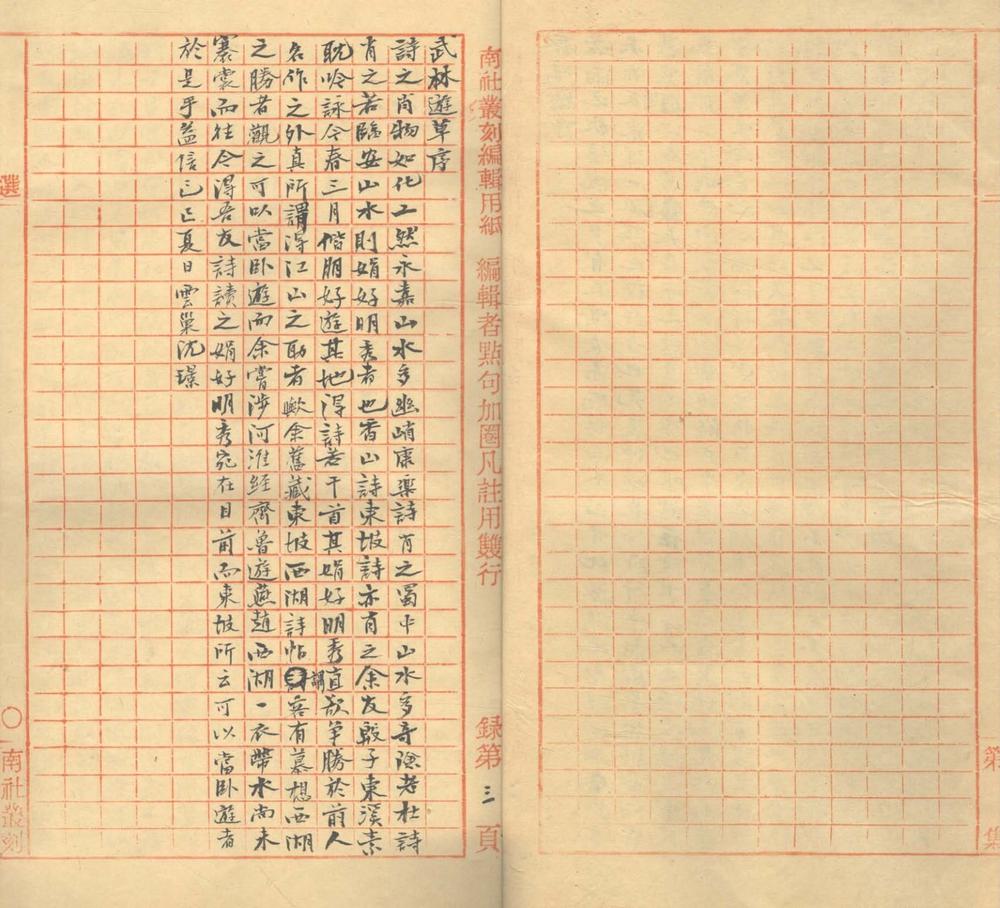 第 集
南社叢刻編輯用紙 編輯者點句加圈凡註用雙行 錄第三頁
武林遊草序
詩之肖物如化工然永嘉山水多幽峭康樂詩肖之蜀中山水多奇險老杜詩
肖之若臨安山水則娟好明秀者也香山詩東坡詩亦肖之余友毅子東溪素
耽吟詠今春三月偕朋好遊其地得詩若干首其娟好明秀直欲爭勝於前人
名作之外真所謂得江山之助者歟余舊藏東坡西湖詩帖謂客有慕想西湖
之勝者觀之可以當臥遊而余嘗涉河淮經齊魯遊燕趙西湖一衣帶水尚未
褰裳而往今得吾友詩讀之娟好明秀宛在目前而東坡所云可以當臥遊者
於是乎益信已己夏日雲巢沈璟
選 〇南社叢刻